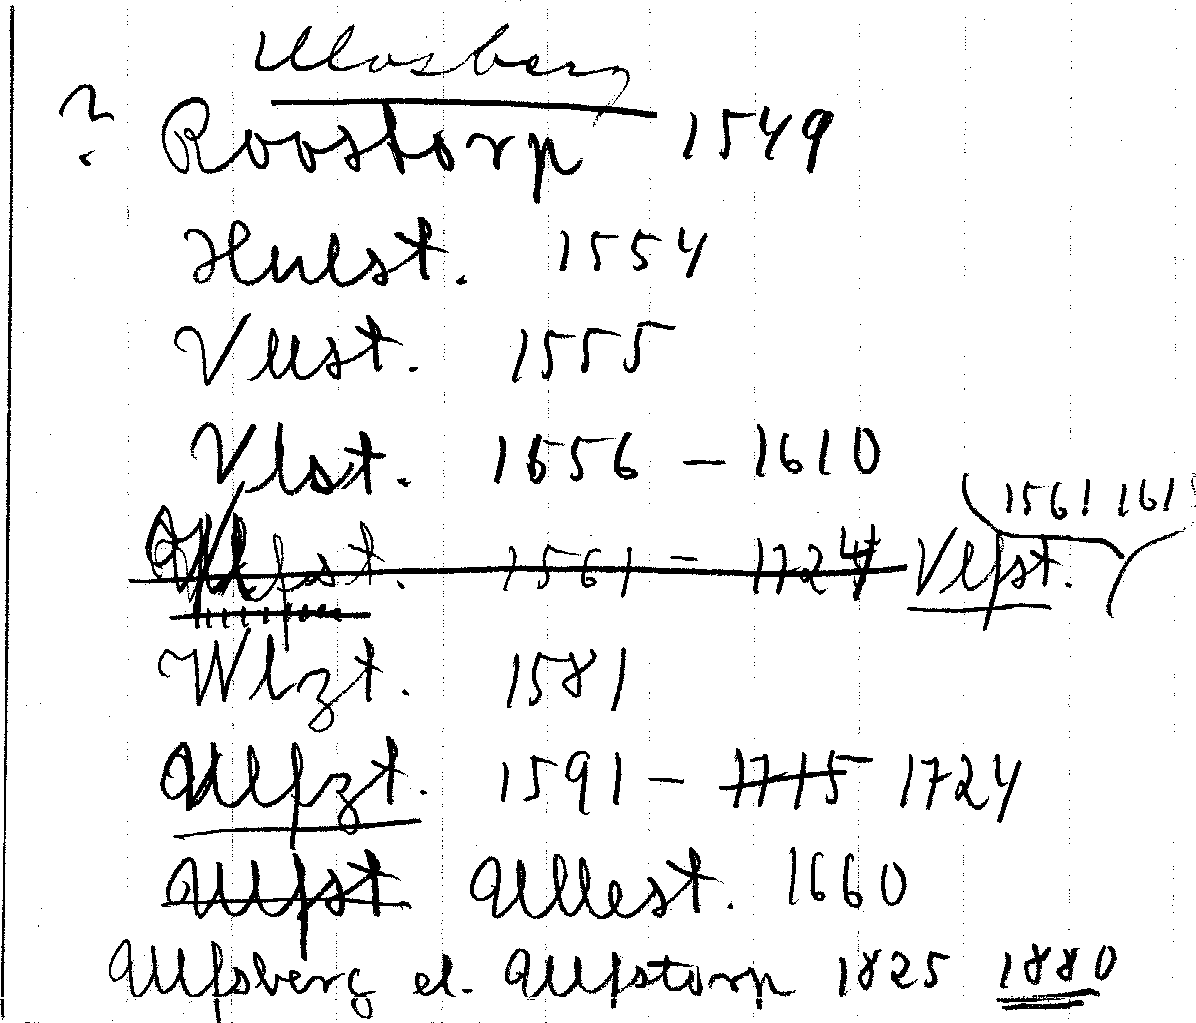 Ulvsberg
? Roostorp 1549
Hulst. 1554
Vllst. 1555
Vlst. 1556 – 1610
1561 161
1561 – 1724 Vlfst.
Wlzt. 1581
Ulfzt. 1591 – 1715 1724
Ulfst Ullest. 1660
Ulfsberg el. Ulfstorp 1825 1880